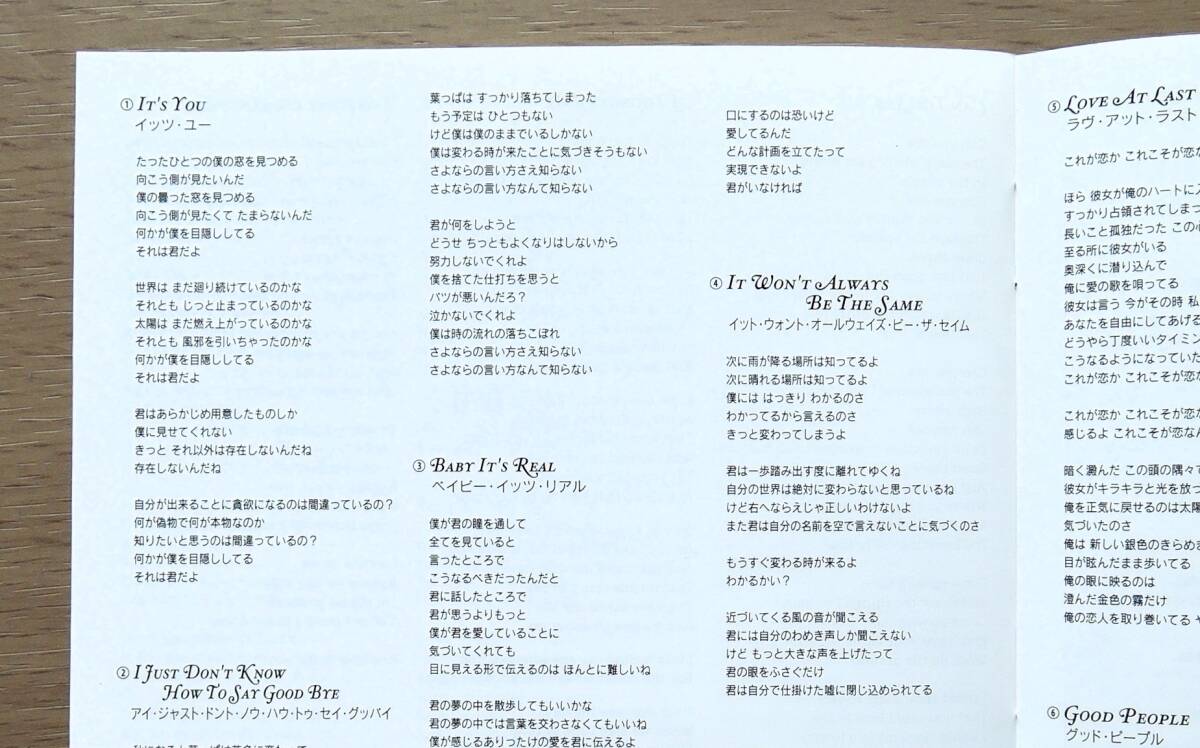 ① IT'S YOU
イッツ・ユー
たったひとつの僕の窓を見つめる
向こう側が見たいんだ
僕の曇った窓を見つめる
向こう側が見たくて たまらないんだ
何かが僕を目隠ししてる
それは君だよ
世界は まだ廻り続けているのかな
それとも じっと止まっているのかな
太陽は まだ燃え上がっているのかな
それとも 風邪を引いちゃったのかな
何かが僕を目隠ししてる
それは君だよ
君はあらかじめ用意したものしか
僕に見せてくれない
きっと それ以外は存在しないんだね
存在しないんだね
自分が出来ることに貪欲になるのは間違っているの？
何が偽物で何が本物なのか
知りたいと思うのは間違っているの？
何かが僕を目隠ししてる
それは君だよ
② I JUST DON'T KNOW
HOW TO SAY GOOD BYE
アイ・ジャスト・ドント・ノウ・ハウ・トゥ・セイ・グッバイ
葉っぱは すっかり落ちてしまった
もう予定は ひとつもない
けど僕は僕のままでいるしかない
僕は変わる時が来たことに気づきそうもない
さよならの言い方さえ知らない
さよならの言い方なんて知らない
君が何をしようと
どうせ ちっともよくなりはしないから
努力しないでくれよ
僕を捨てた仕打ちを思うと
バツが悪いんだろ？
泣かないでくれよ
僕は時の流れの落ちこぼれ
さよならの言い方さえ知らない
さよならの言い方なんて知らない
③ BABY IT'S REAL
ベイビー・イッツ・リアル
僕が君の瞳を通して
全てを見ていると
言ったところで
こうなるべきだったんだと
君に話したところで
君が思うよりもっと
僕が君を愛していることに
気づいてくれても
目に見える形で伝えるのは ほんとに難しいね
君の夢の中を散歩してもいいかな
君の夢の中では言葉を交わさなくてもいいね
僕が感じるありったけの愛を君に伝えるよ
口にするのは恐いけど
愛してるんだ
どんな計画を立てたって
実現できないよ
君がいなければ
④ IT WON'T ALWAYS
BE THE SAME
イット・ウォント・オールウェイズ・ビー・ザ・セイム
次に雨が降る場所は知ってるよ
次に晴れる場所は知ってるよ
僕には はっきり わかるのさ
わかってるから言えるのさ
きっと変わってしまうよ
君は一歩踏み出す度に離れてゆくね
自分の世界は絶対に変わらないと思っているね
けど右へならえじゃ正しいわけないよ
また君は自分の名前を空で言えないことに気づくのさ
もうすぐ変わる時が来るよ
わかるかい？
近づいてくる風の音が聞こえる
君には自分のわめき声しか聞こえない
けど もっと大きな声を上げたって
君の眼をふさぐだけ
君は自分で仕掛けた嘘に閉じ込められてる
⑤ LOVE AT LAST
ラヴ・アット・ラスト
これが恋か これこそが恋な
ほら 彼女が俺のハートに
すっかり占領されてしまっ
長いこと孤独だった この心
至る所に彼女がいる
奥深くに潜り込んで
俺に愛の歌を唄ってる
彼女は言う 今がその時 私
あなたを自由にしてあげる
どうやら丁度いいタイミン
こうなるようになっていた
これが恋か これこそが恋な
これが恋か これこそが恋な
感じるよ これこそが恋なん
暗く澱んだ この頭の隅々で
彼女がキラキラと光を放っ
俺を正気に戻せるのは太陽
気づいたのさ
俺は 新しい銀色のきらめき
目が眩んだまま歩いてる
俺の眼に映るのは
澄んだ金色の霧だけ
俺の恋人を取り巻いてる
⑥ GOOD PEOPLE
グッド・ピープル